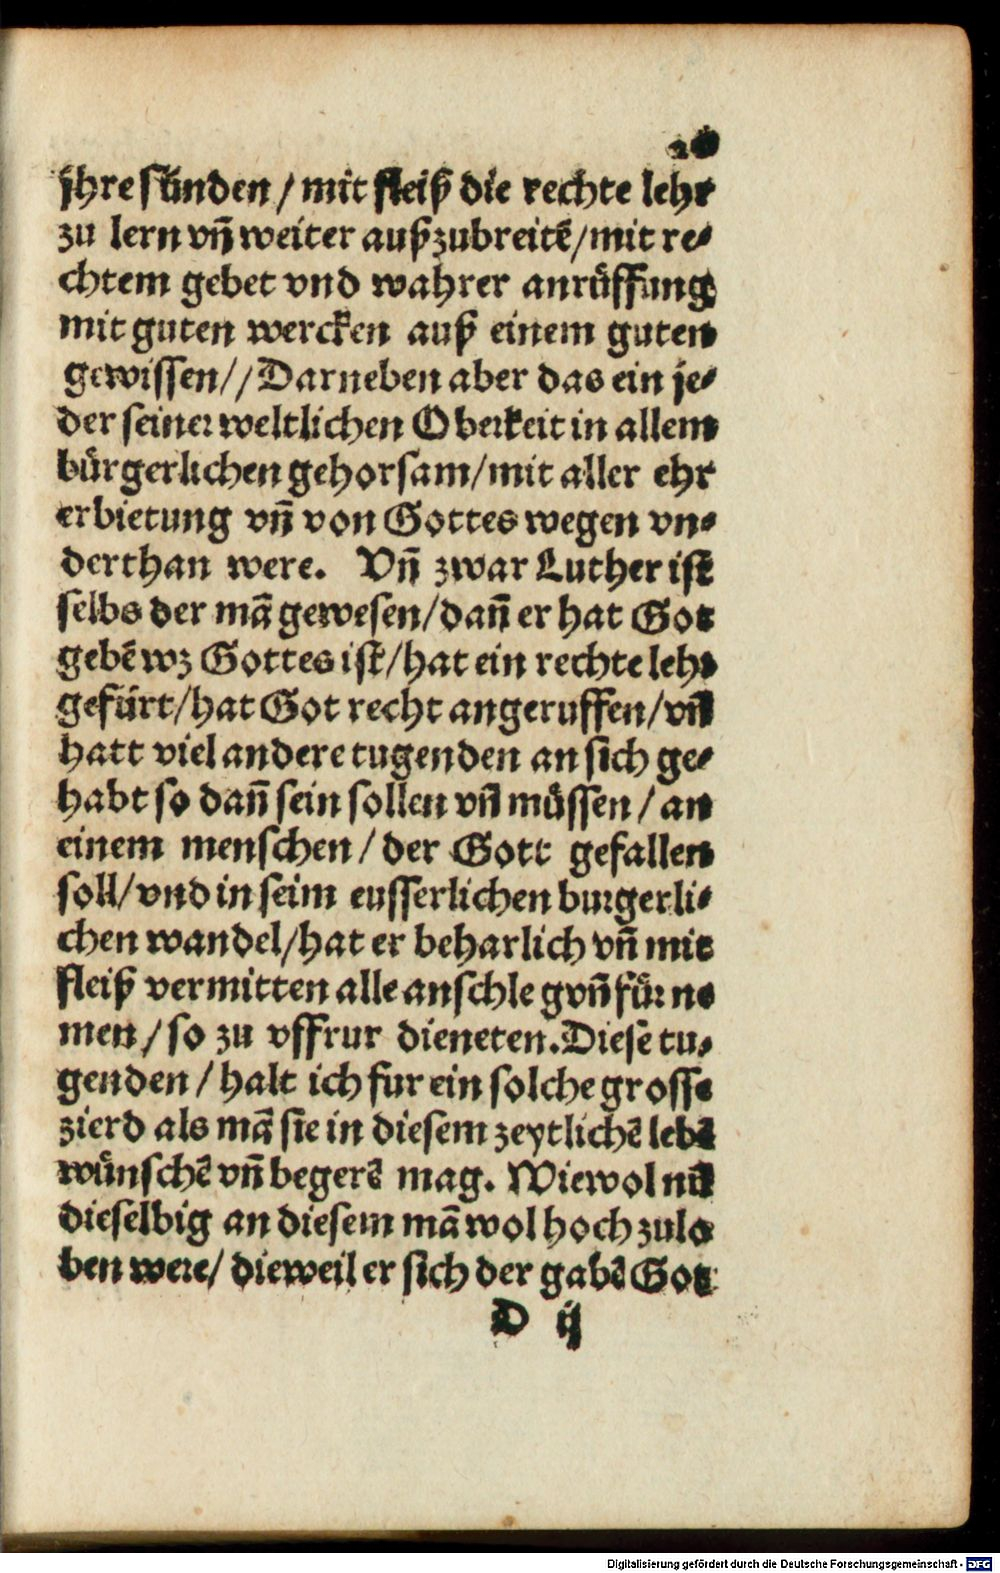 jhre sünden / mit fleiß die rechte lehr
zu lern vñ weiter außzubreitē/mit re⸗
chtem gebet vnd wahrer anrüffung
mit guten wercken auß einem guten
gewissen// Darneben aber das ein je⸗
der seiner weltlichen Oberkeit in allem
bürgerlichen gehorsam/mit aller ehr
erbietung vñ von Gottes wegen vn⸗
derthan were. Vñ zwar Luther ist
selbs der mā gewesen/dañ er hat Got
gebē wz Gottes ist/hat ein rechte lehr
gefürt/hat Got recht angeruffen/vñ
hatt viel andere tugenden an sich ge⸗
habt so dañ sein sollen vñ müssen / an
einem menschen / der Gott gefallen
soll/vnd in seim eusserlichen burgerli⸗
chen wandel/hat er beharlich vñ mit
fleiß vermitten alle anschleg vñ fürne
men / so zu vffrur dieneten.Diese tu⸗
genden / halt ich fur ein solche grosse
zierd als mā sie in diesem zeytlichē lebē
wünschē vñ begerē mag. Wiewol nū
dieselbig an diesem mā wol hoch zulo
ben were/ dieweil er sich der gabē Got
D ij
Digitalisierung gefördert durch die Deutsche Forschungsgemeinschaft - DFG